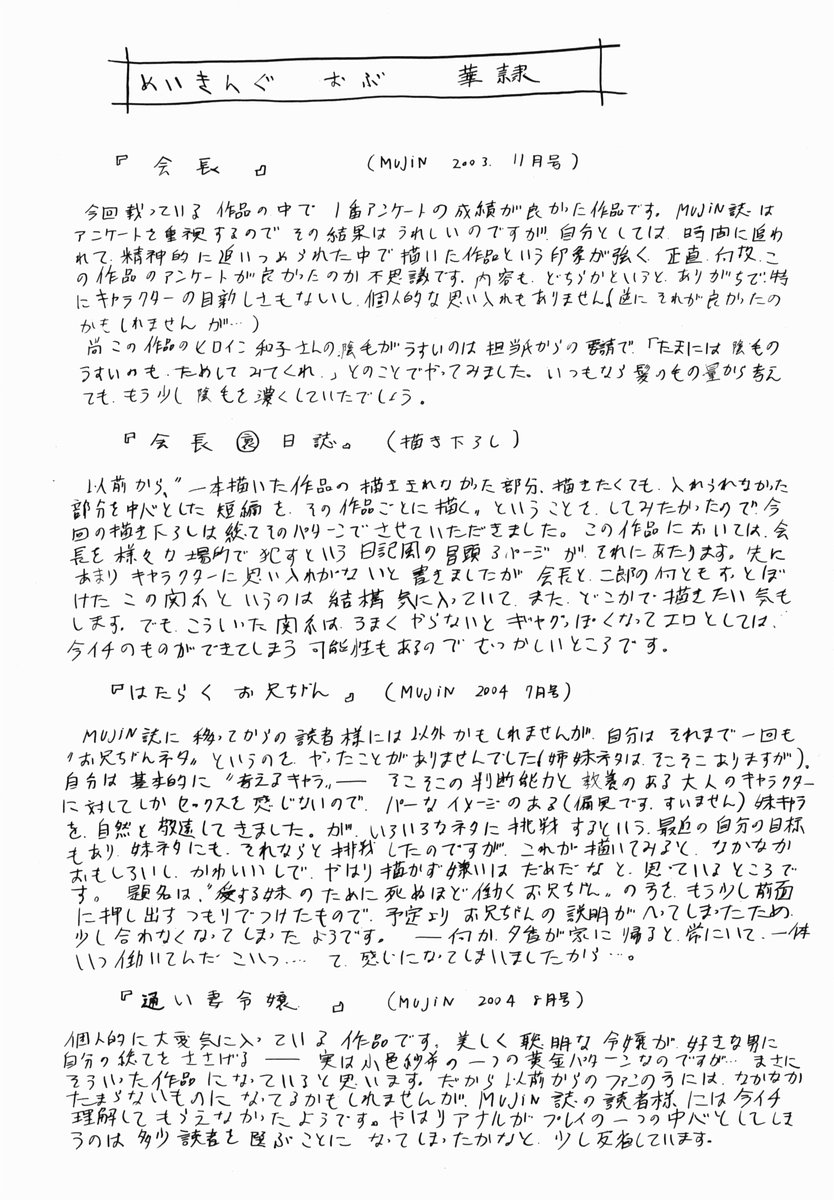 めいきんぐ おぶ 華隷
『会長』 (MUJIN 2003. 11月号)
今回載っている作品の中で 1番アンケートの成績が良かった作品です。MUJIN誌は
アンケートを重視するので その結果はうれしいのですが、自分としては、時間に追われ
て、精神的に追いつめられた中で描いた作品という印象が強く、正直、何故、こ
の作品のアンケートが良かったのか不思議です。内容も、どちらかというと、ありがちで、特
にキャラクターの目新しさもないし、個人的な思い入れもありません(逆に それが良かったの
かもしれません が…)
尚 この作品のヒロイン 和子さんの、陰毛がうすいのは 担当氏からの 要請で、「たまには 陰毛の
うすいのも、ためして みてくれ。」とのことでやってみました。いつもなら 髪の毛の量から考え
ても、もう少し 陰毛を濃くしていたでしょう。
『会長 裏 日誌』 (描き下ろし)
以前から、〝一本描いた作品の 描ききれなかった部分、描きたくても、入れられなかった
部分を中心とした 短編を、その作品ごとに描く〟ということを、してみたかったので、今
回の描き下ろしは総てそのパターンでさせていただきました。この作品においては、会
長を 様々な 場所で 犯すという 日記風の冒頭3ページ が、それにあたります。先に
あまり キャラクターに思い入れがないと 書きましたが 会長と、二郎の何とも す、とぼ
けた この関係 と いうのは 結構 気に入っていて、また、どこかで、描きたい 気も
します。でも、こういった 関係は、うまく やらないと ギャグっぽくなって エロとしては、
今イチのものができてしまう 可能性もあるので むつかしいところです。
『はたらく お兄ちゃん』 (MUJIN 2004 7月号)
MUJIN誌に 移ってからの 読者様には 以外かもしれませんが、自分は それまで 一回も
〝お兄ちゃんネタ〟というのを、やったことがありませんでした(姉妹ネタは、そこそこありますが)。
自分は 基本的に 〝考えるキャラ〟―― そこそこの 判断能力と 教養のある 大人のキャラクター
に対してしか セックスを 感じないので、パーな イメージのある(偏見です、すいません)妹キャラ
を、自然と 敬遠してきました。が、いろいろなネタに 挑戦 するという、最近の自分の目標
もあり、妹ネタにも、それならと 挑戦したのですが、これが描いてみると、なかなか
おもしろいし、かわいいしで、やはり 描かず嫌いは だめだな と、思っているところで
す。 題名は、〝愛する妹 のために 死ぬほど 働く お兄ちゃん〟の方を、もう少し 前面
に押し出す つもりでつけたもので、予定より お兄ちゃんの 説明が へってしまったため、
少し 合わなくなってしまった ようです。 ――何か、夕香が 家に 帰ると、常にいて、一体
いつ 働いてんだ こいつ…… て、感じになってしまいましたから…。
『通い妻令嬢』 (MUJIN 2004 8月号)
個人的に 大変気に入っている 作品です。美しく 聡明な 令嬢が、好きな男に
自分の総てを ささげる ―― 実は小邑紗希の一つの黄金パターンなのですが… まさに
そういった 作品に なっていると思います。だから 以前からのファンの方には、なかなか
たまらないものに なってるかもしれませんが、MUJIN 誌の読者様 には 今イチ
理解して もらえなかった ようです。やはり アナルが プレイの一つの中心としてしま
うのは 多少 読者を 選ぶことに なってしまったかなと、少し反省しています。